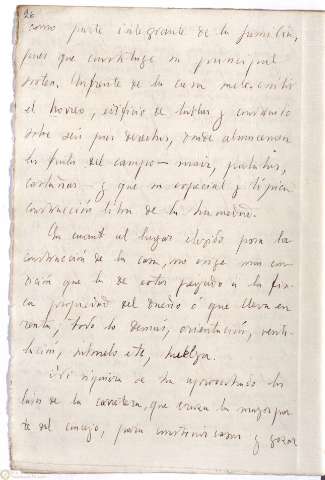 26
como parte integrante de la familia,
pues que constituye su principal
sosten. Enfrente de la casa
el horreo, edificio de tablas y construido
sobre seis pies derechos, donde almacenan
los frutos del campo — maiz, patatas,
castañas — y que su especial y tipica
construcción libra de la humedad.
En cuanto al lugar elegido para la
construcción de la casa, no exige mas con-
dición que la de estar pegado a la fin-
ca propiedad del dueño ó que lleva en
renta; todo lo demas, orientación, venti-
lación, subsuelo etc, huelga.
Ni siquiera se ha aprovechado los
lados de la carretera, que cruza la mayor par-
te del concejo, para construir casas y gozar